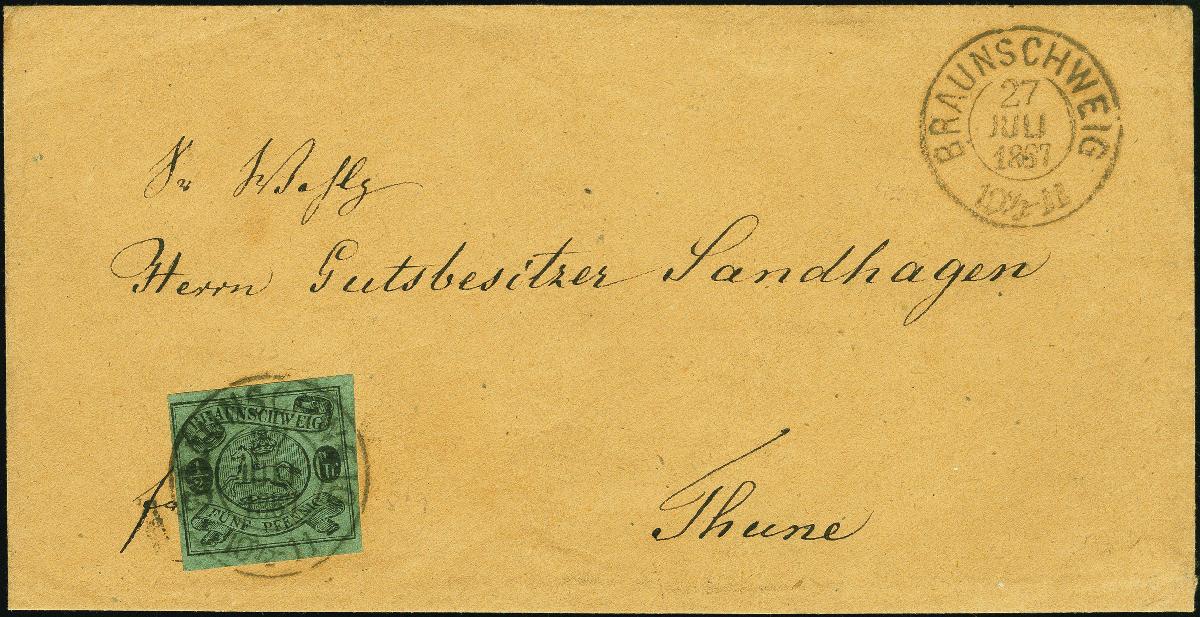 BRAUNSCHWEIG
27
JULI
1867
10½-11
Sr Wohlg
Herrn Gutsbesitzer Sandhagen
BRAUNSCHWEIG
FÜNF PFENNIG
Thune